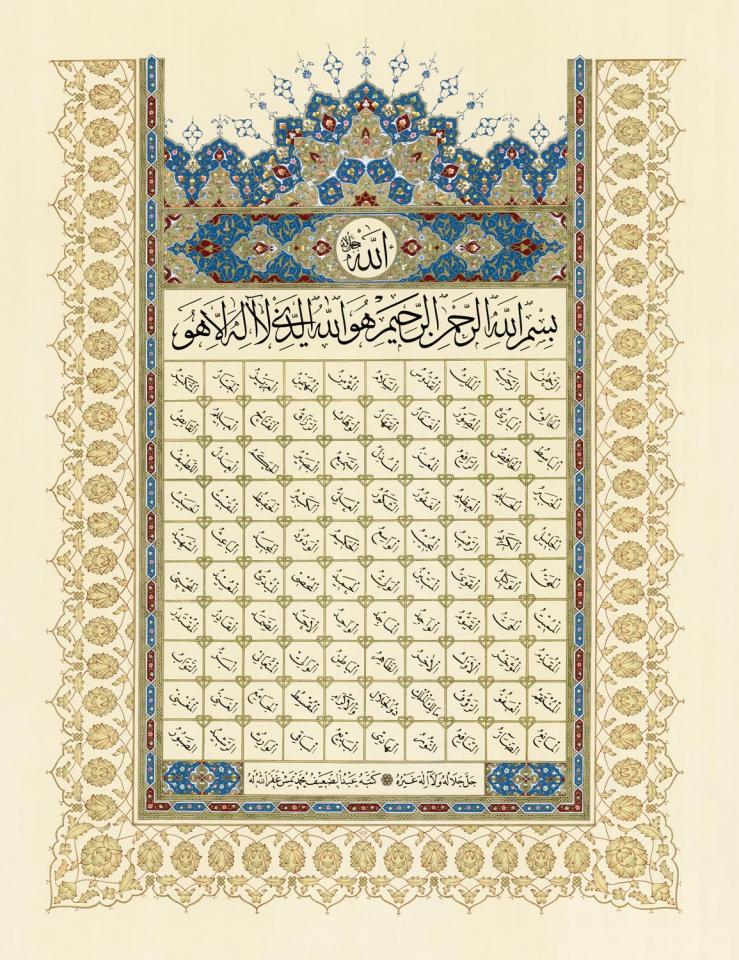 الله جل جلاله
بسم الله الرحمن الرحيم هو الله الذي لا اله الا هو
الرحمن الرحيم الملك القدوس السلام المؤمن المهيمن العزيز الجبار المتكبر
الخالق البارئ المصور الغفار القهار الوهاب الرزاق الفتاح العليم القابض
الباسط الخافض الرافع المعز المذل السميع البصير الحكم العدل اللطيف
الخبير الحليم العظيم الغفور الشكور العلي الكبير الحفيظ المقيت الحسيب
الجليل الكريم الرقيب المجيب الواسع الحكيم الودود المجيد الباعث الشهيد
الحق الوكيل القوي المتين الولي الحميد المحصي المبدئ المعيد المحيي
المميت الحي القيوم الواجد الماجد الواحد الاحد الصمد القادر المقتدر
المقدم المؤخر الاول الاخر الظاهر الباطن الوالي المتعالي البر التواب
المنتقم العفو الرؤف مالك الملك ذو الجلال والاكرام المقسط الجامع الغني المغني
المانع الضار النافع النور الهادي البديع الباقي الوارث الرشيد الصبور
جل جلاله ولا اله غيره كتبه عبد الضعيف محمد غفر الله له